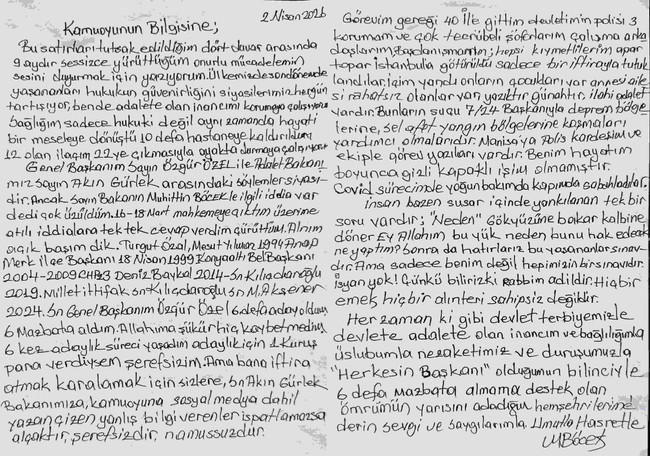 2 Nisan 2026
Kamuoyunun Bilgisine;
Bu satırları tutsak edildiğim dört duvar arasında
9 aydır sessizce yürüttüğüm onurlu mücadelemin
sesini duyurmak için yazıyorum. Ülkemizde son dönemde
yaşananları hukukun güvenirliğini siyasilerimiz hergün
tartışıyor, bende adalete olan inancımı korumaya çalışıyorum
bağlığım sadece hukuki değil aynı zamanda hayati
bir meseleye dönüştü 10 defa hastaneye kaldırıldım
12 olan ilaçım 22 ye çıkmasıyla ayakta durmaya çalışıyorum
Genel Başkanım Sayın Özgür ÖZEL ile Adalet Bakanı
mız Sayın Akın Gürlek arasındaki söylemler siyasi-
dir. Ancak Sayın Bakanın Muhittin BÖCEK le ilgili iddia var
dedi çok üzüldüm. 16-18 Mart mahkemeye çıktım üzerine
atılı iddialara tek tek cevap verdim çürüttüm. Alnım
açık başım dik. Turgut Özal, Mesut Yılmaz 1994 Anap
Merk ilçe Başkanı 18 Nisan 1999 Konyaaltı Bel Başkanı
2004-2009 CHP Deniz Baykal 2014- Sn Kılıçdaroğlu
2019. Millet ittifakı Sn Kılıçdaroğlu Sn M. Akşener
2024. Sn Genel Başkanım Özgür Özel 6 defa aday oldum
6 Mazbata aldım. Allahıma şükür hiç kaybetmedim
6 kez adaylık süreci yaşadım adaylık için 1 Kuruş
para verdiysem şerefsizim. Ama bana iftira
atmak karalamak için sizlere, Sn Akın Gürlek
Bakanımıza, kamuoyuna sosyal medya dahil
yazan çizen yanlış bilgi verenler ispatlamazsa
alçaktır, şerefsizdir, namussuzdur.
Görevim gereği 40 ile gittim devletimin polisi 3
korumam ve çok tecrübeli şoförlerim çalışma arka
daşlarım, başdanışmanım; hepsi kıymetlilerim apar
topar İstanbula götürüldü sadece bir iftirayla tutuk
landılar içim yandı onların çocukları var annesi aile
si rahatsız olanlar var yazıktır günahtır. ilahi adalet
vardır. Bunların suçu 7/24 Başkanıyla deprem bölge
lerine, sel afet yangın bölgelerine koşmaları
yardımcı olmalarıdır. Manisa'ya Polis kardeşim ve
ekiple görev yazıları vardır. Benim hayatım
boyunca gizli kapaklı işim olmamıştır.
Covid sürecinde yoğun bakımda kapımda sabahladılar.
İnsan bazen susar içinde yankılanan tek bir
soru vardır; "Neden" Gökyüzüne bakar kalbine
döner Ey Allahım bu yük neden bunu hak edecek
ne yaptım? Sonra da hatırlarız bu yaşananlar sınav
dır. Ama sadece benim değil hepimizin bir sınavıdır.
İsyan yok! Çünkü biliriz ki Rabbim adildir. Hiçbir
emek, hiçbir alınteri sahipsiz değildir.
Her zaman ki gibi devlet terbiyemizle
devlete adalete olan inancım ve bağlılığımla
üslubumla nezaketimiz ve duruşumuzla
"Herkesin Başkanı" olduğunun bilinciyle
6 defa Mazbata almama destek olan
ömrünün yarısını adadığım hemşehrilerime
derin sevgi ve saygılarımla Umutla Hasretle
MBöcek